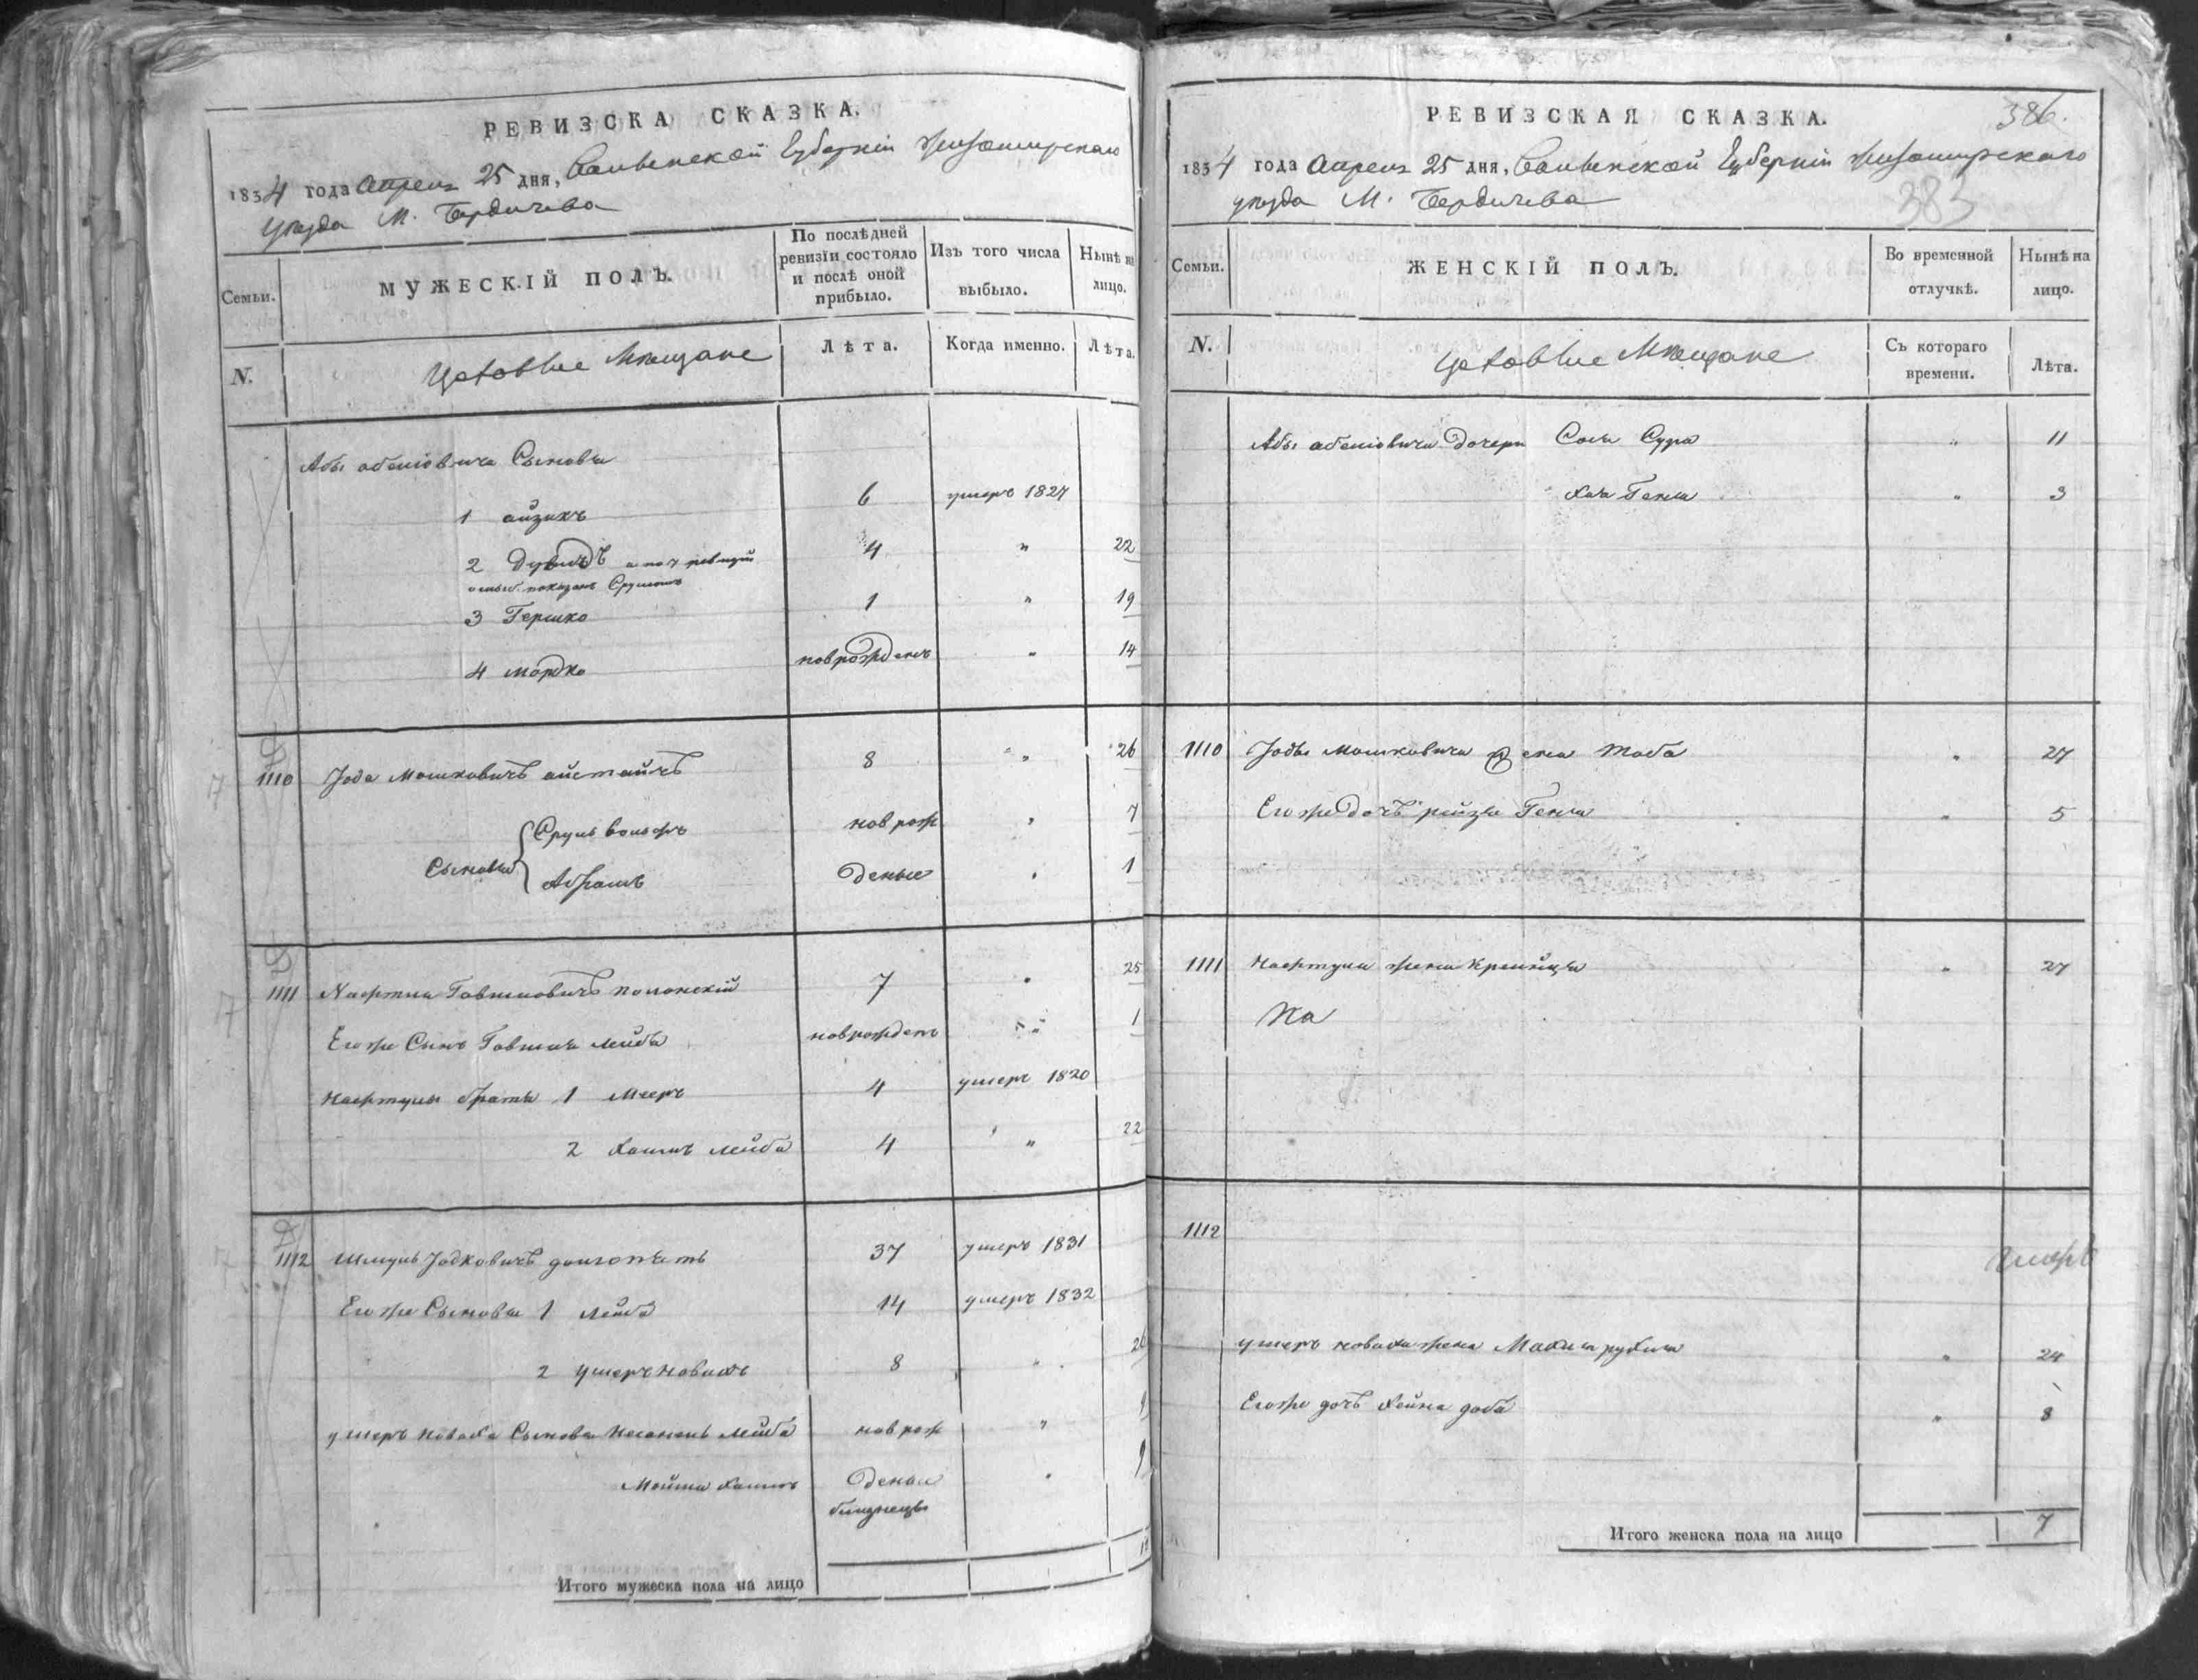 РЕВИЗСКА СКАЗКА.
1834 года Апреля 25 дня, Волынской Губерніи Житомирскаго
уезда М. Бердичева
Семьи.
МУЖЕСКІЙ ПОЛЪ.
По послѣдней ревизіи состояло и послѣ оной прибыло.
Изъ того числа выбыло.
Нынѣ на лицо.
N.
Цеховые Мещане
Лѣта.
Когда именно.
Лѣта.
Абы абелiовича Сыновья
1 айзикъ 6 умеръ 1827
2 Дувидъ а по 7 ревизіи 4 " 22
показанъ Срулемъ
3 Гершко 1 " 19
4 Мордко новрожденъ " 14
1110 Іода Мошковичъ 8 " 26
Сыновья Сруль Вольфъ новрож " 7
Абрамъ деные " 1
1111 Нафтула Говшиовичъ полонскій 7 " 25
Егоже Сынъ Говшиа Лейба новрожденъ " 1
Нафтулы братья 1 Мееръ 4 умеръ 1820
2 Хаимъ Лейба 4 " 22
1112 Шмуль Іодковичъ 37 умеръ 1831
Егоже Сыновья 1 Лейба 14 умеръ 1832
2 Ушеръ Новахъ 8 " 26
Ушеръ Новаха Сыновья Лейба новрож "
Хаимъ деные "
близнецы
Итого мужеска пола на лицо
РЕВИЗСКАЯ СКАЗКА.
386.
1834 года Апреля 25 дня, Волынской Губерніи Житомирскаго
уезда М. Бердичева
383
Семьи.
ЖЕНСКІЙ ПОЛЪ.
Во временной отлучкѣ.
Нынѣ на лицо.
N.
Цеховые Мещане
Съ котораго времени.
Лѣта.
Абы абелiовича дочери Сося Сура " 11
Хая Геня " 3
1110 Іоды Мошковича жена Тоба " 27
Егоже дочъ рейзя Геня " 5
1111 Нафтулы жена Крейнця " 27
1112
Ушеръ Новаха жена " 24
Егоже дочъ Хейна доба " 8
Итого женска пола на лицо 7